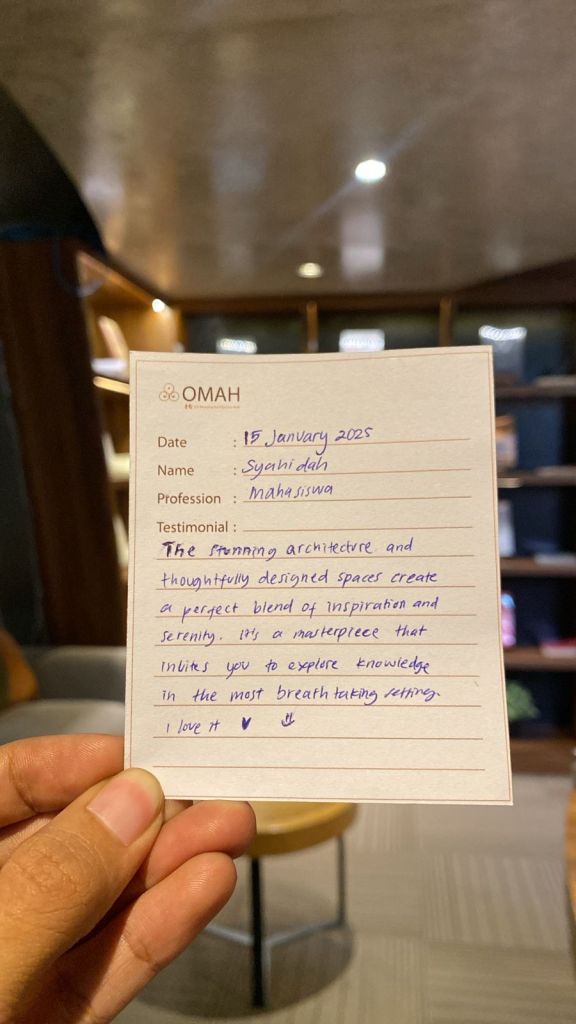 OMAH
Date : 15 January 2025
Name : Syahidah
Profession : Mahasiswa
Testimonial :
The stunning architecture and
thoughtfully designed spaces create
a perfect blend of inspiration and
serenity. It's a masterpiece that
invites you to explore knowledge
in the most breathtaking setting.
I love it